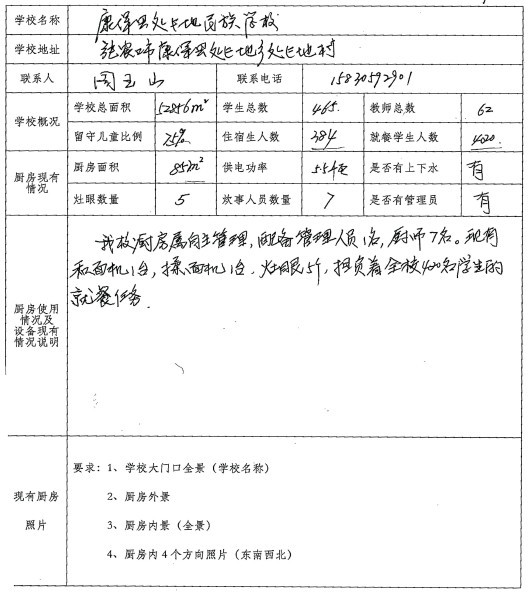 学校名称 康保县处长地民族学校
学校地址 张家口市康保县处长地乡处长地村
联系人 周玉山 联系电话 15830592901
学校概况 学校总面积 52856m² 学生总数 465 教师总数 62
留守儿童比例 75% 住宿生人数 384 就餐学生人数 420
厨房现有情况 厨房面积 85m² 供电功率 是否有上下水 有
灶眼数量 5 炊事人员数量 7 是否有管理员 有
我校厨房属自主管理,配备管理人员1名,厨师7名。现有
和面机1台,揉面机1台,灶眼5个,担负着全校420名学生的
就餐任务.
厨房使用
情况及
设备现有
情况说明
现有厨房
照片
要求:1、学校大门口全景(学校名称)
2、厨房外景
3、厨房内景(全景)
4、厨房内4个方向照片(东南西北)